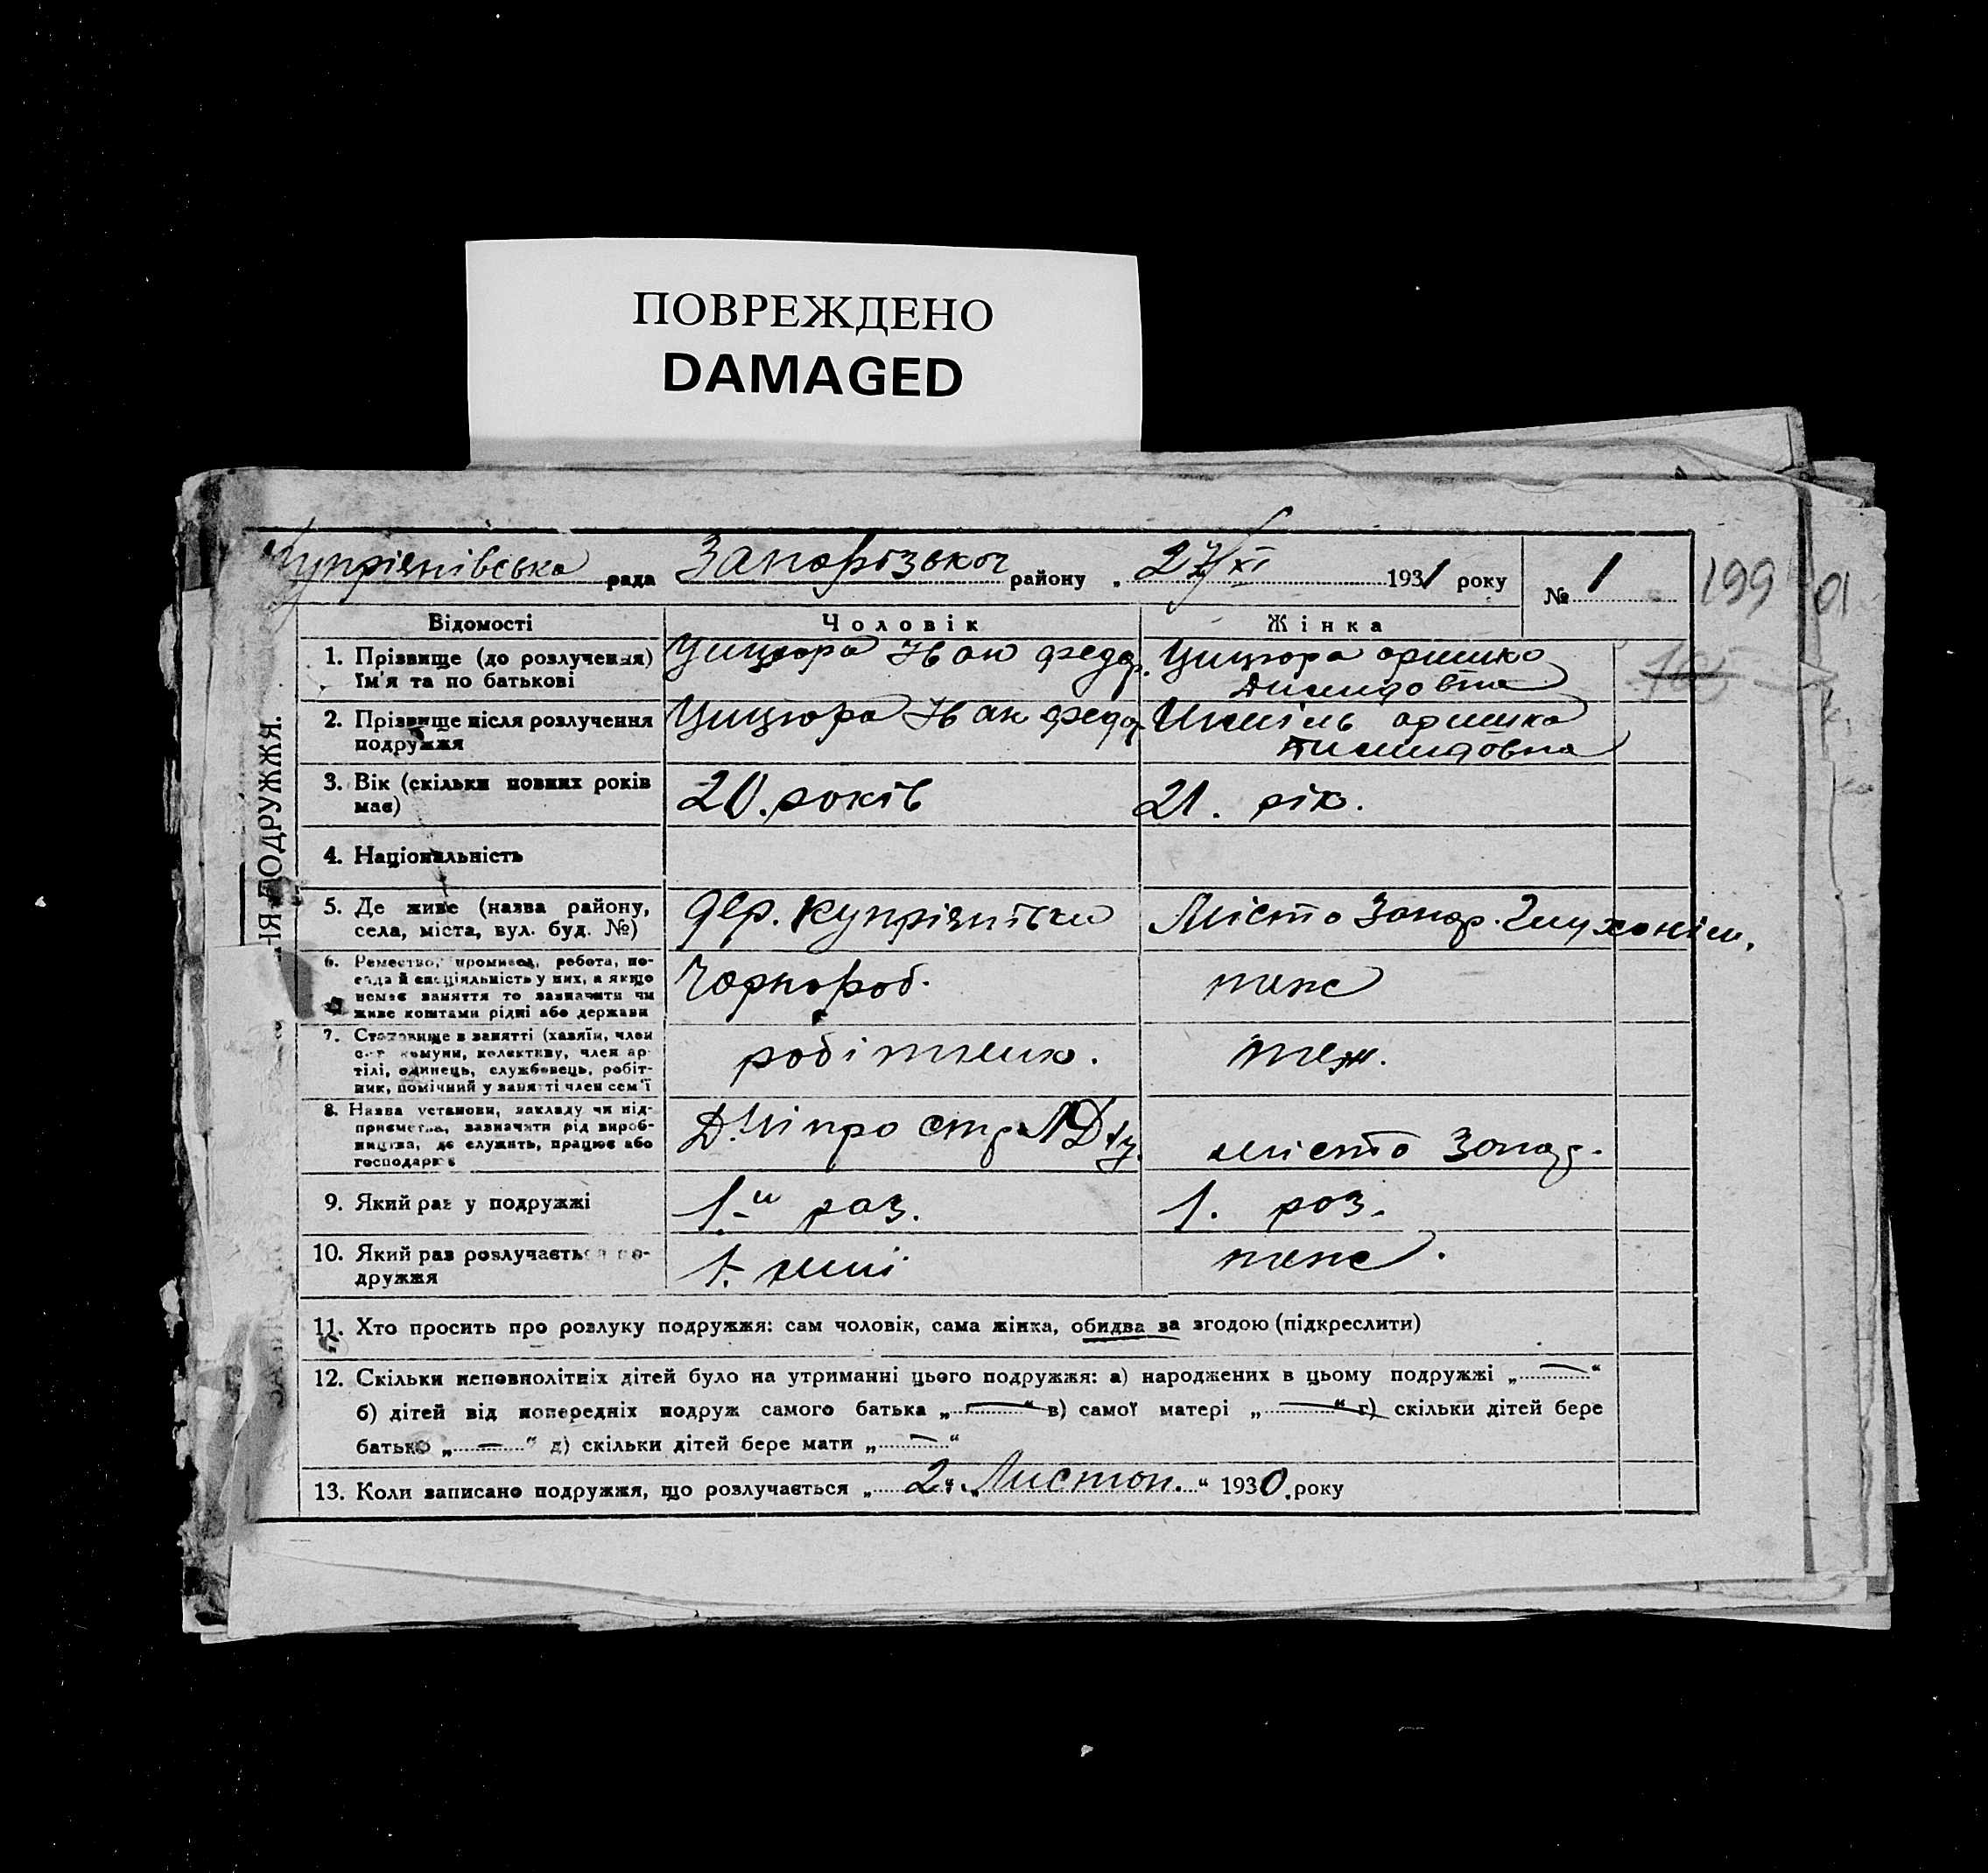 ПОВРЕЖДЕНО
DAMAGED
Купріянівська рада Запорізької району „ 27/XI 1931 року № 1 199
Відомості Чоловік Жінка
1. Прізвище (до розлучення) Цицюра Іван Федор. Цицюра Оришка
Ім'я та по батькові
2. Прізвище після розлучення Цицюра Іван Федор. Оришка
подружжя
3. Вік (скільки повних років 20. років 21. рік.
має)
4. Національність
5. Де живе (назва району, дер. Купріянівка Місто Запор.
села, міста, вул. буд. №)
6. Ремество, промисел, робота, по- Чорнороб. теж
сада й спеціяльність у них, а якщо
немає заняття то зазначити чи
живе коштами рідні або держави
7. Становище в занятті (хазяїн, член робітник. теж.
с.-г комуни, колективу, член ар-
тілі, одинець, службовець, робіт-
ник, помічний у занятті член сем'ї
8. Назва установи, закладу чи під- Дніпростр. місто Запор.
приємства, зазначити рід вироб-
ництва, де служить, працює або
господарює
9. Який раз у подружжі 1-й раз. 1. роз.
10. Який раз розлучається по- 1. теж.
дружжя
11. Хто просить про розлуку подружжя: сам чоловік, сама жінка, обидва за згодою (підкреслити)
12. Скільки неповнолітніх дітей було на утриманні цього подружжя: а) народжених в цьому подружжі „ — “
б) дітей від попередніх подруж самого батька „ — “ в) самої матері „ — “ г) скільки дітей бере
батько „ — “ д) скільки дітей бере мати „ — “
13. Коли записано подружжя, що розлучається „ 2 “ Листоп. “ 1930. року
НЯ ПОДРУЖЖЯ.